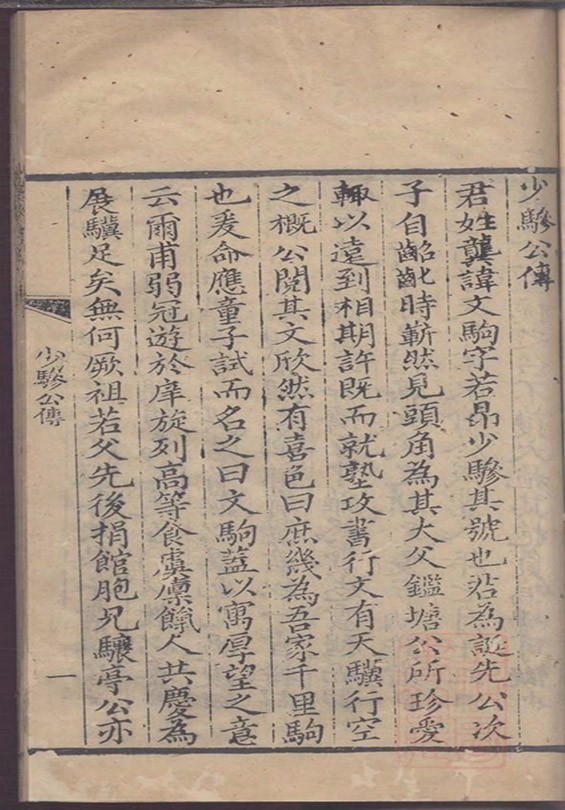 少驂公傳
君姓龔諱文駒字若昂少驂其號也君為誕先公次
子自齠齔時嶄然見頭角為其大父鑑塘公所珍愛
輒以遠到相期許既而就塾攻書行文有天驥行空
之概公閱其文欣然有喜色曰庶幾為吾家千里駒
也爰命應童子試而名之曰文駒葢以寓厚望之意
云爾甫弱冠遊於庠旋列高等食虞廩餼人共慶為
展驥足矣無何厥祖若父先後捐館胞兄驤亭公亦
少驂公傳
一